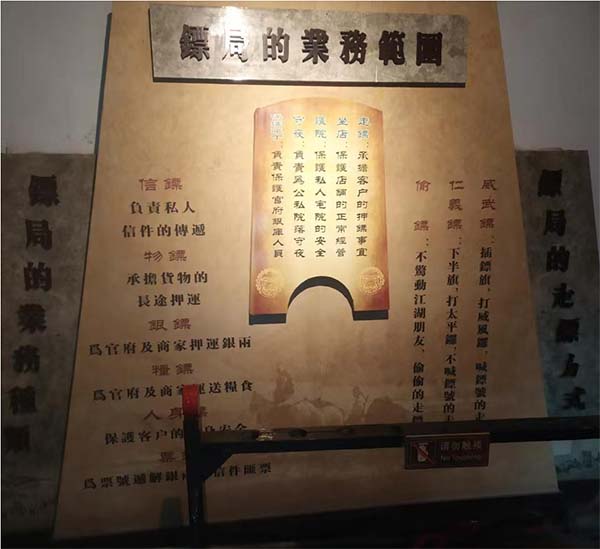 鏢局的業務範圍
走鏢：承擔客户的押鏢事宜
坐店：保護店鋪的正常經營
護院：保護私人宅院的安全
守夜：負責爲公私院落守夜
負責保護官府銀庫人員
威武鏢：插鏢旗，打威風鑼，喊鏢號的走
仁義鏢：下半旗，打太平鑼，不喊鏢號的走
偷鏢：不驚動江湖朋友，偷偷的走鏢
信鏢
負責私人
信件的傳遞
物鏢
承擔貨物的
長途押運
銀鏢
爲官府及商家押運銀兩
糧鏢
爲官府及商家運送糧食
人身鏢
保護客户的
安全
票
爲票號遞解銀兩
信件匯票
鏢局的走鏢方式
鏢局的業務種類
请勿触摸
No Touching